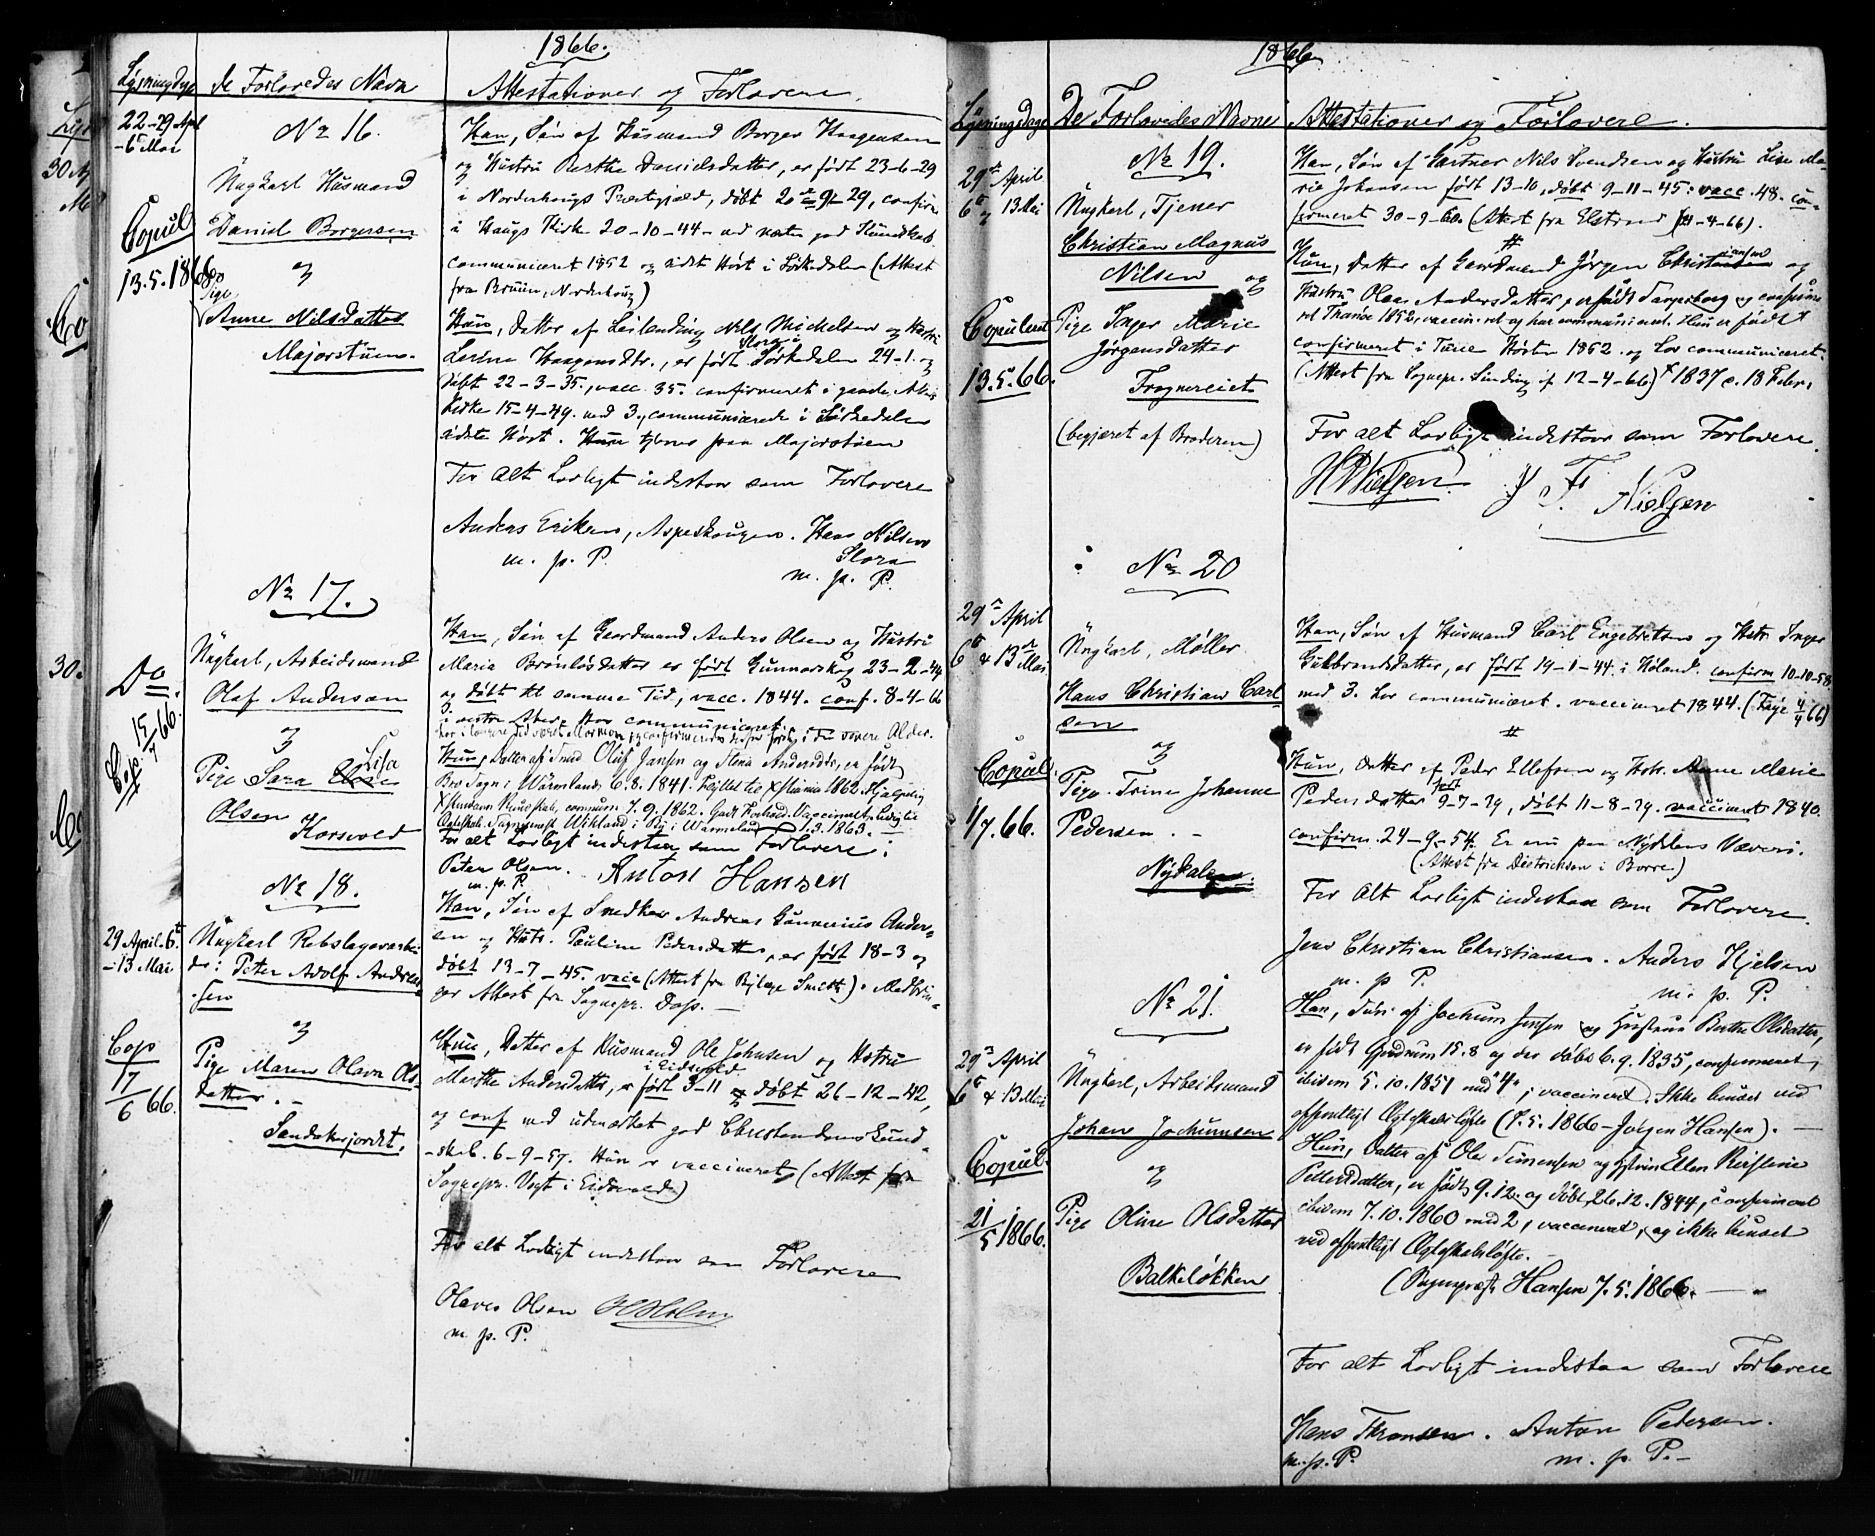 1866.
Lysningsdage
De Forlovedes Navn
Attestationer og Forlovere.
22-29 Apl
-6 Mai
No 16.
Ungkarl Husmand
Daniel Borgersen
og
Pige
Anne Nilsdatter
Majorstuen.
Copul.
13.5.1866
Han, Søn af Husmand Borger Haagensen
og Hustru Berthe Danielsdatter, er født 23-6-29
i Norderhougs Præstegjæld, døbt 20-9-29, confirm
i Haugs Kirke 20-10-44 - med meget god Kundskab
communiceret 1852 og sidst Høst i Sørkedalen (Attest
fra Bruun, Norderhoug)
Hun, Datter af Leilending Nils Mickelsen og Hustru
Haagensdtr., er født Sørkedalen 24-1. og
døbt 22-3-35., vacc. 35. confirmeret i gamle Akers
Kirke 15-4-49. med 3., communicerede i Sørkedalen
sidste Høst. Hun tjener paa Majorstuen
For alt Lovligt indestaar som Forlovere
Anders Eriksen, Aspeskougen. Hans Nilsen
Slora
m. p. P. m. p. P.
No 17.
Do
Ungkarl, Arbeidsmand
Olaf Anderson
og
Pige Sara Lisa
Olsen
Korsvold
Cop. 15/7 66.
Han, Søn af Gaardmand Anders Olsen og Hustru
Maria Bryniłdsdatter er født Gunnarskog 23-2-44
og døbt til samme Tid, vacc. 1844. conf. 8-4-66
i vestre Aker, har communiceret
Hun, Datter af Smed Oluf Jansen og Stina Andersdtr, er født
Bro Sogn i Wärmland 6.8.1841. flyttet til Xstiania 1862.
Kundskab, commun. 7.9.1862.
Wikland i By i Wärmeland 1.3.1863.
For alt Lovligt indestaar som Forlovere:
Peter Olsen. Anton Hansen
m. p. P.
No 18.
29 April. 6t
-13 Mai
Ungkarl Rebslagerarbei
der: Peter Adolf Andrea
sen
og
Pige Maren Olava Ols
datter. -
Sandakerjordet.
Cop
17/6 66.
Han, Søn af Snedker Andreas Gunerius Ander-
sen og Hustr. Pauline Pedersdatter, er født 18-3 og
døbt 13-7-45. vacc (Attest fra Byläge Smith). Medbrin-
ger Attest fra Sognepr. Dop. -
Hun, Datter af Husmand Ole Johnsen og Hustru
i Eidsvold
Marthe Andersdatter, er født 3-11 og døbt 26-12-42,
og conf med udmærket god Christendomskund-
-skab. 6-9-57. Hun er vaccineret (Attest fra
Sognepr. Vogt i Eidsvold)
For alt Lovligt indestaar som Forlovere
Olaves Olsen H. Holm
m. p. P.
1866.
Lysningsdage
De Forlovedes Navne
Attestationer og Forlovere.
29de April
6te og 13 Mai
No 19.
Ungkarl, Tjener
Christian Magnus
Nilsen og
Pige Inger Marie
Jørgensdatter
Frognereiet
(begjæret af Broderen)
Copuleret
13.5.66.
Han, Søn af Gartner Nils Svendsen og Hustru Lise Ma-
rie Johansen født 13-10, døbt 9-11-45. vacc. 48. con-
firmeret 30-9-60. (Attest fra Elstrand 11-4-66).
Hun, Datter af Gaardmand Jørgen Christiansen og
Hustru Olea Andersdatter, er født og confirme
ret 1852, vaccineret og har communiceret. Hun er født
confirmeret i Tune Høsten 1852. og har communiceret.
(Attest fra Sognepr. Linding af 12-4-66) 1837 d. 18 Febr.
For alt Lovligt indestaar som Forlovere
H Nielsen. J. F. Nielsen
No 20
29de April
6te & 13de Mai
Ungkarl, Møller
Hans Christian Carl
sen
og
Pige Trine Johanne
Pedersen. -
Nydalen.
Copul.
1/7. 66.
Han, Søn af Husmand Carl Engebretsen og Hstr. Inger
Gulbrandsdatter, er født 19-1-44 i Høland. confirm 10-10-58
med 3. har communiceret. vaccineret 1844. (Faye 4/4 66)
Hun, Datter af Peder Ellefsen og Hstr. Anne Marie
Pedersdatter født 9-7-39, døbt 11-8-39. vaccineret 1840.
confirm. 24-9-54. Er nu paa Nydalens Væveri.
(Attest fra Dietrichsen i Borre)
For Alt Lovligt indestaa som Forlovere.
Jens Christian Christiansen. Anders Hjelsen
m. p P. m. p. P.
No 21.
29de April
6te & 13 Mai
Ungkarl, Arbeidsmand
Johan Jochumsen
og
Pige Oline Olsdatter
Balkeløkken
Copul.
21/5 1866.
Han, Søn af Jochum Jensen og Hustrue Berthe Olsdatter,
er født Gudrum 15.8 og der døbt 6.9.1835, confirmeret
ibidem 5.10.1851 med "4", vaccineret. Ikke hindret ved
offentligt Ægteskabsløfte (7.5.1866 - Jørgen Hansen). -
Hun, Datter af Ole Simensen og Hustru Ellen Kirstine
Pettersdatter, er født 9.12. og døbt 26.12.1844, confirmeret
ibidem 7.10.1860 med 2, vaccineret, og ikke hindret
ved offentligt Ægteskabsløfte. -
(Sognepræst Hansen 7.5.1866. -
For alt Lovligt indestaa som Forlovere
Hans Thronsen. Anton Pedersen.
m. p. P. m. p. P. -